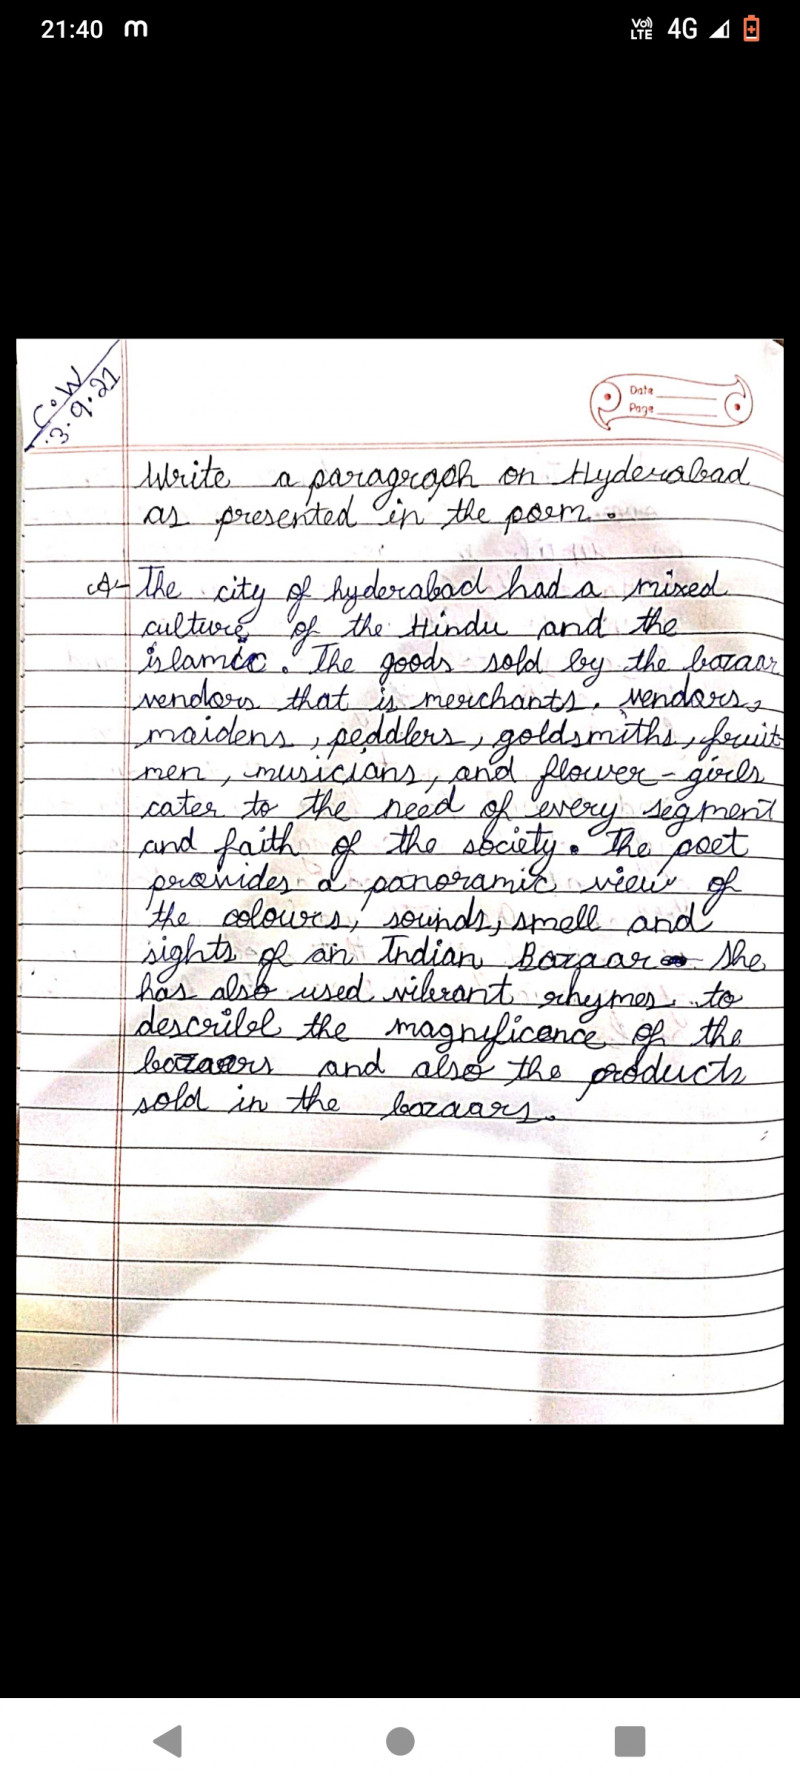 21:40 m
Vo) LTE 4G
C.W
3.9.21
Date
Page
Write a paragraph on Hyderabad
as presented in the poem.
A- The city of hyderabad had a mixed
culture of the Hindu and the
islamic. The goods sold by the bazaar
vendors that is merchants, vendors,
maidens, peddlers, goldsmiths, fruit
men, musicians, and flower-girls
cater to the need of every segment
and faith of the society. The poet
provides a panoramic view of
the colours, sounds, smell and
sights of an Indian Bazaar She
has also used vibrant rhymes to
describe the magnificance of the
bazaars and also the products
sold in the bazaars.